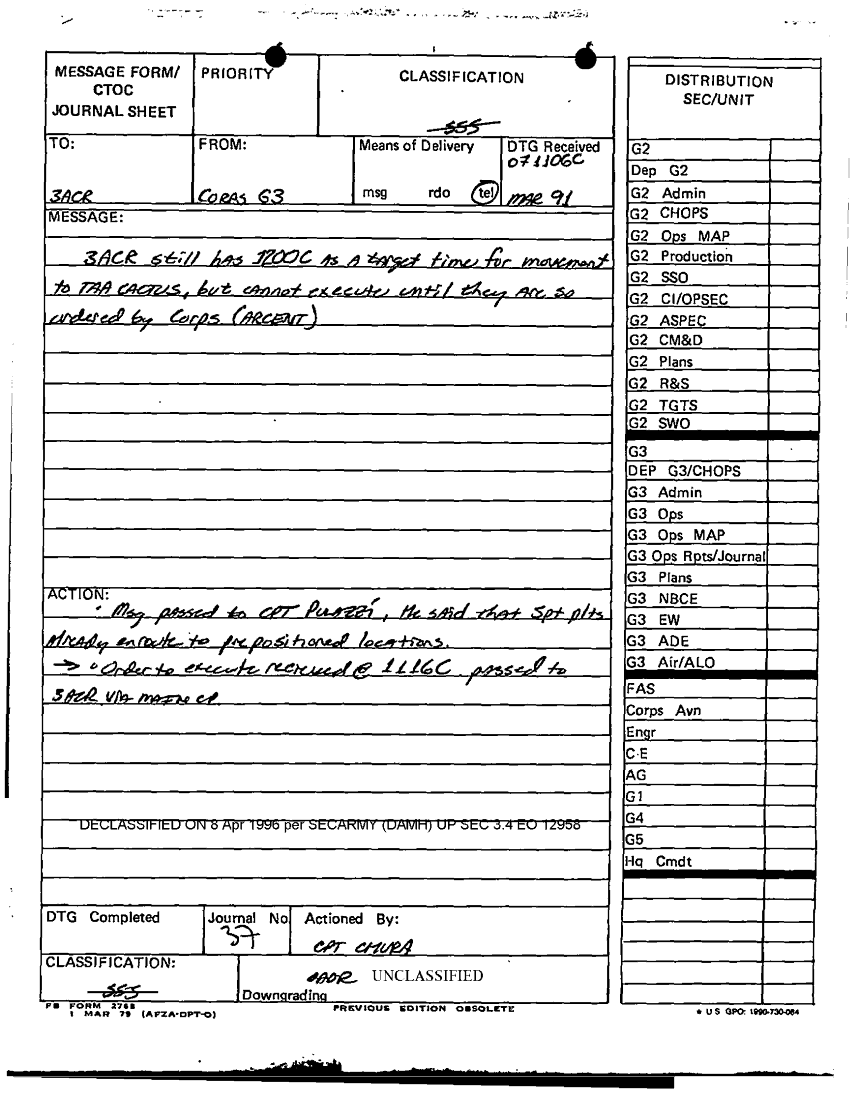 MESSAGE FORM/
CTOC
JOURNAL SHEET
PRIORITY
CLASSIFICATION
SSS
TO:
3ACR
FROM:
CORAS G3
Means of Delivery
msg rdo tel
DTG Received
071106C
MAR 91
MESSAGE:
3ACR still has 1200C as a target time for movement
to TAA CACTUS, but cannot execute until they are so
ordered by Corps (ARCENT)
ACTION:
· Msg passed to CPT PULAZZI, He said that Spt plts
Already enroute to prepositioned locations.
→ · Order to execute recieved @ 1116C passed to
3ACR VIA MAIN CP.
DECLASSIFIED ON 8 Apr 1996 per SECARMY (DAMH) UP SEC 3.4 EO 12958
DTG Completed
Journal No
37
Actioned By:
CPT CHURA
CLASSIFICATION:
SSS
OADR UNCLASSIFIED
Downgrading
FB FORM 2768
1 MAR 79 (AFZA-DPT-O)
PREVIOUS EDITION OBSOLETE
DISTRIBUTION
SEC/UNIT
G2
Dep G2
G2 Admin
G2 CHOPS
G2 Ops MAP
G2 Production
G2 SSO
G2 CI/OPSEC
G2 ASPEC
G2 CM&D
G2 Plans
G2 R&S
G2 TGTS
G2 SWO
G3
DEP G3/CHOPS
G3 Admin
G3 Ops
G3 Ops MAP
G3 Ops Rpts/Journal
G3 Plans
G3 NBCE
G3 EW
G3 ADE
G3 Air/ALO
FAS
Corps Avn
Engr
C-E
AG
G1
G4
G5
Hq Cmdt
* U S GPO: 1990-730-084